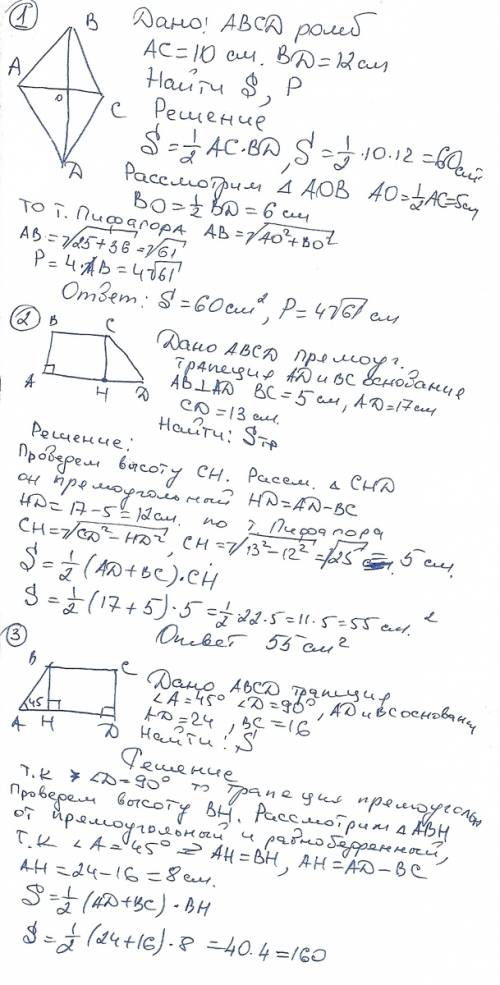 1
B
A
O
C
D
Дано! ABCD ромб
AC=10 см. BD=12см
Найти S, P
Решение
S=1/2 AC·BD, S=1/2·10·12=60см
Рассмотрим Δ AOB AO=1/2AC=5см
BO=1/2BD=6 см
то т. Пифагора AB=√AO²+BO²
AB=√25+36=√61
P=4·AB=4√61
Ответ: S=60см², P=4√61 см
2
B
C
A
H
D
Дано ABCD прямоуг.
трапеция AD и BC основание
AB⊥AD BC=5см, AD=17см
CD=13 см.
Найти: Sтр
Решение:
Проведем высоту CH. Рассм. Δ CHD
он прямоугольный HD=AD-BC
HD=17-5=12см. по т. Пифагора
CH=√CD²-HD², CH=√13²-12²=√25=5 см.
S=1/2(AD+BC)·CH
S=1/2(17+5)·5=1/2·22·5=11·5=55 см.²
Ответ 55 см²
3
B
C
45
A
H
D
Дано ABCD трапеция
∠A=45° ∠D=90°, AD и BC основани
AD=24, BC=16
Найти: S
Решение
Т.К ∠D=90° то трапеция прямоугольн
Проведем высоту BH. Рассмотрим Δ ABH
от прямоугольный и равнобедренный,
Т.К ∠A=45° ⇒ AH=BH, AH=AD-BC
AH=24-16=8см.
S=1/2(AD+BC)·BH
S=1/2(24+16)·8=40·4=160